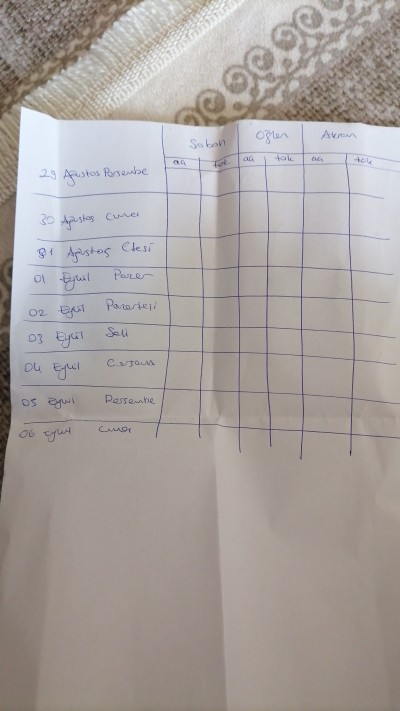 Sabah Öğlen Akşam
aç tok aç tok aç tok
29 Ağustos Perşembe
30 Ağustos Cuma
31 Ağustos Ctesi
01 Eylül Pazar
02 Eylül Pazartesi
03 Eylül Salı
04 Eylül Çarşamba
05 Eylül Perşembe
06 Eylül Cuma